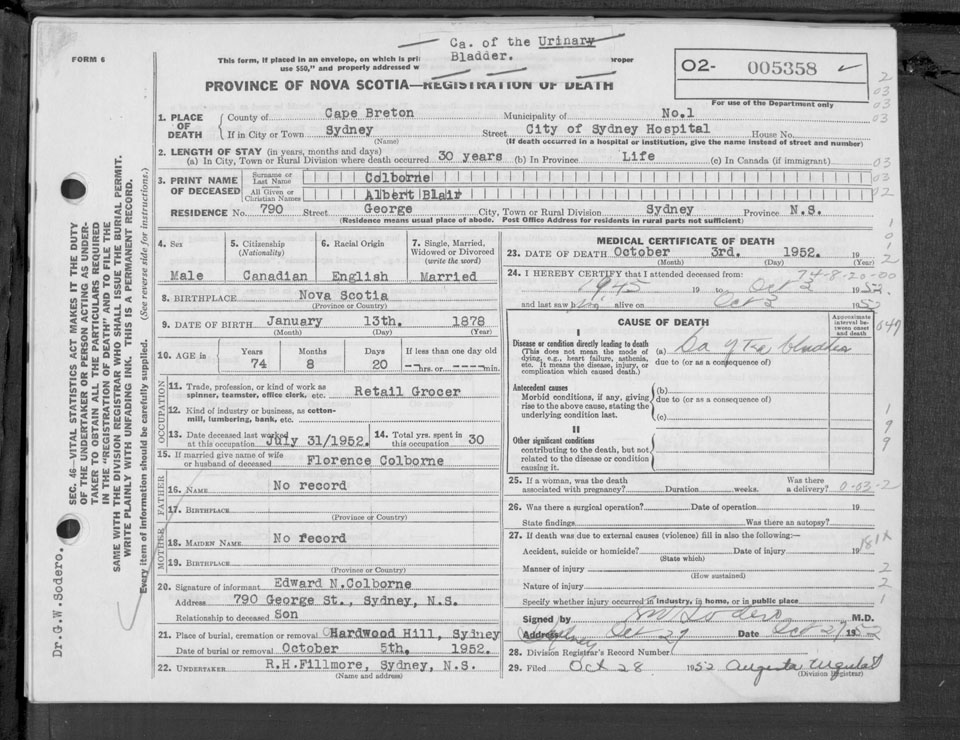 Ca. of the Urinary
Bladder.
FORM 6
This form, if placed in an envelope, on which is pri roper
use $50," and properly addressed w
O2- 005358
For use of the Department only
PROVINCE OF NOVA SCOTIA—REGISTRATION OF DEATH
1. PLACE OF DEATH
County of Cape Breton Municipality of No.1
If in City or Town Sydney Street City of Sydney Hospital House No.
(Name) (If death occurred in a hospital or institution, give the name instead of street and number)
2. LENGTH OF STAY (in years, months and days)
(a) In City, Town or Rural Division where death occurred 30 years (b) In Province Life (c) In Canada (if immigrant)
3. PRINT NAME OF DECEASED
Surname or Last Name Colborne
All Given or Christian Names Albert Blair
RESIDENCE No. 790 Street George City, Town or Rural Division Sydney Province N.S.
(Residence means usual place of abode. Post Office Address for residents in rural parts not sufficient)
4. Sex Male
5. Citizenship (Nationality) Canadian
6. Racial Origin English
7. Single, Married, Widowed or Divorced (write the word) Married
8. BIRTHPLACE Nova Scotia
(Province or Country)
9. DATE OF BIRTH January 13th. 1878
(Month) (Day) (Year)
10. AGE in Years 74 Months 8 Days 20 If less than one day old hrs. or min.
OCCUPATION
11. Trade, profession, or kind of work as spinner, teamster, office clerk, etc. Retail Grocer
12. Kind of industry or business, as cotton-mill, lumbering, bank, etc.
13. Date deceased last worked at this occupation July 31/1952.
14. Total yrs. spent in this occupation 30
15. If married give name of wife or husband of deceased Florence Colborne
FATHER
16. NAME No record
17. BIRTHPLACE
(Province or Country)
MOTHER
18. MAIDEN NAME No record
19. BIRTHPLACE
(Province or Country)
20. Signature of informant Edward N.Colborne
Address 790 George St., Sydney, N.S.
Relationship to deceased Son
21. Place of burial, cremation or removal Hardwood Hill, Sydney
Date of burial or removal October 5th, 1952.
22. UNDERTAKER R.H.Fillmore, Sydney, N.S.
(Name and address)
MEDICAL CERTIFICATE OF DEATH
23. DATE OF DEATH October 3rd. 1952.
(Month) (Day) (Year)
74-8-20-00
24. I HEREBY CERTIFY that I attended deceased from:
1945 19 to Oct 3 1952.
and last saw h alive on Oct 3 1952
CAUSE OF DEATH
Approximate interval between onset and death
I
Disease or condition directly leading to death
(This does not mean the mode of dying, e.g., heart failure, asthenia, etc. It means the disease, injury, or complication which caused death.)
(a) Ca of the bladder
due to (or as a consequence of)
Antecedent causes
Morbid conditions, if any, giving rise to the above cause, stating the underlying condition last.
(b)
due to (or as a consequence of)
(c)
II
Other significant conditions
contributing to the death, but not related to the disease or condition causing it.
25. If a woman, was the death associated with pregnancy? Duration weeks. Was there a delivery? 0-03-2
26. Was there a surgical operation? Date of operation 19
State findings Was there an autopsy?
27. If death was due to external causes (violence) fill in also the following:—
Accident, suicide or homicide? Date of injury 19
(State which)
181X
Manner of injury
(How sustained)
Nature of injury
Specify whether injury occurred in industry, in home, or in public place
Signed by M.D.
Address Sydney Oct 27 Date Oct 27 1952
28. Division Registrar's Record Number
29. Filed Oct 28 1952 Augusta
(Division Registrar)
SEC. 46—VITAL STATISTICS ACT MAKES IT THE DUTY
OF THE UNDERTAKER OR PERSON ACTING AS UNDER-
TAKER TO OBTAIN ALL THE PARTICULARS REQUIRED
IN THE "REGISTRATION OF DEATH" AND TO FILE THE
SAME WITH THE DIVISION REGISTRAR WHO SHALL ISSUE THE BURIAL PERMIT.
WRITE PLAINLY WITH UNFADING INK. THIS IS A PERMANENT RECORD.
Every item of information should be carefully supplied. (See reverse side for instructions.)
Dr.G.W.Sodero.
2
03
03
03
03
02
1
0
1
2
047
1
9
9
2
2
1